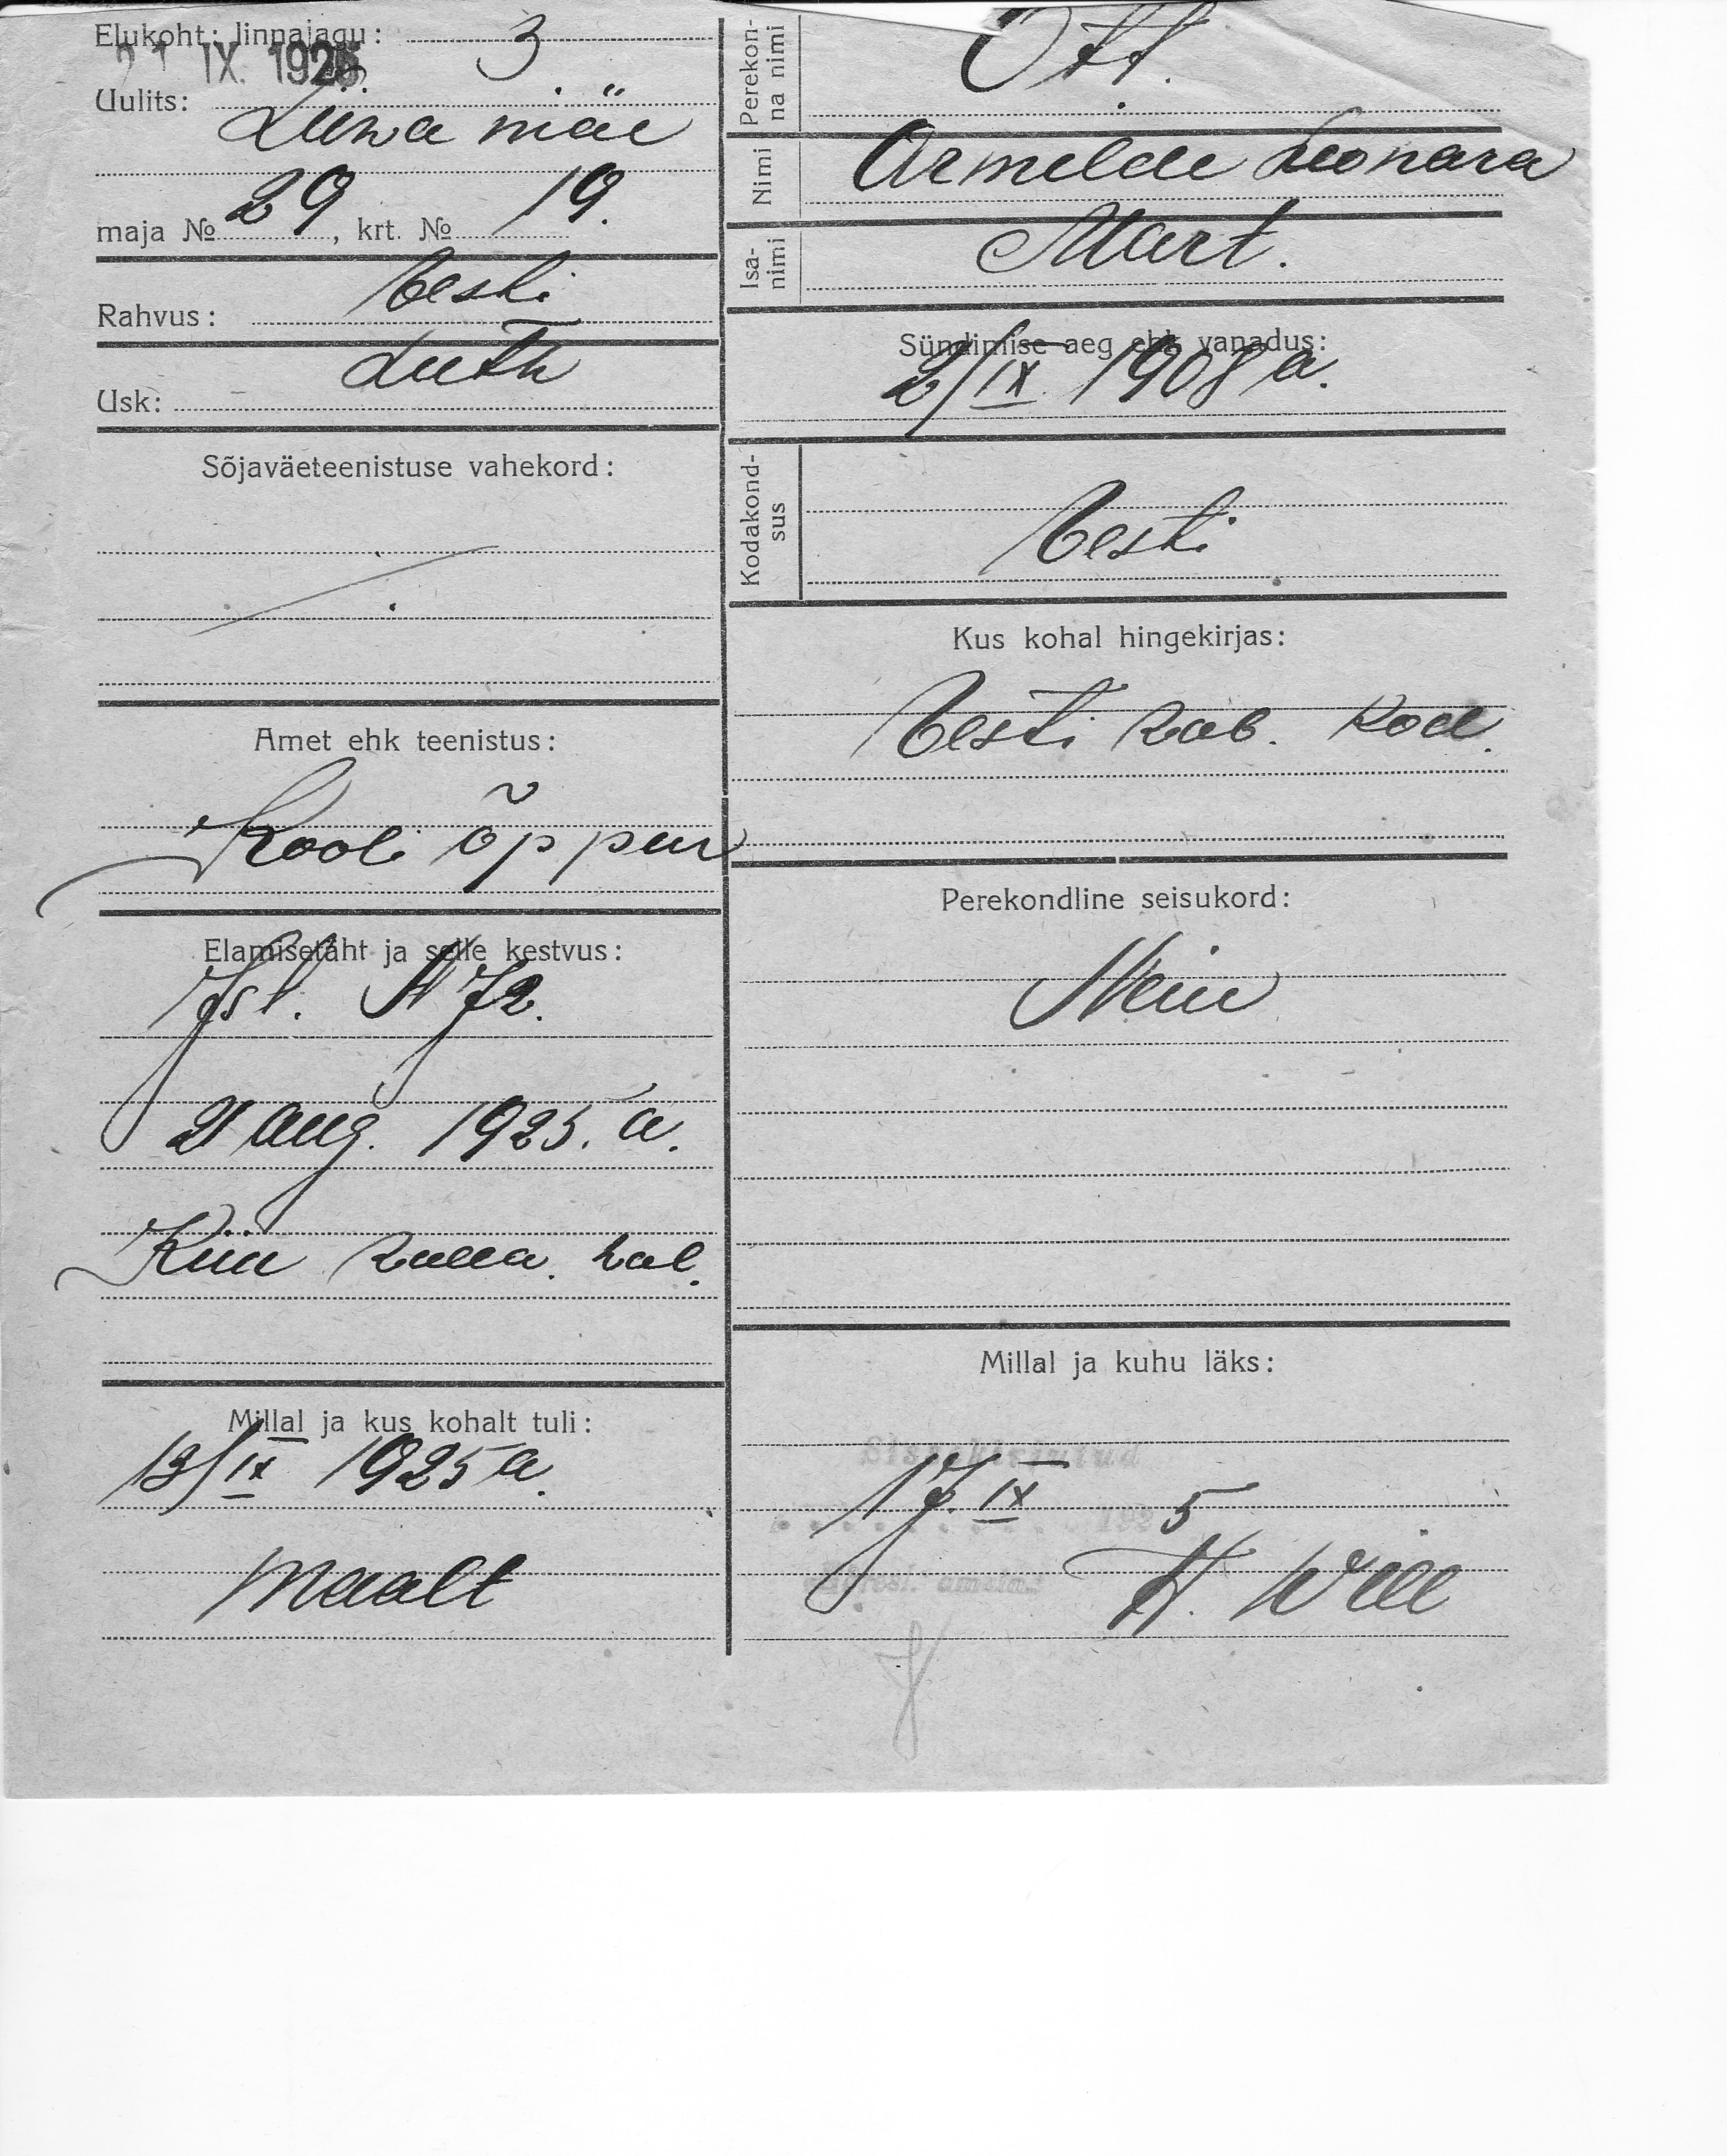 Elukoht: linnajagu: 3
21 IX. 1925
Uulits:
Liiwa mäe
maja № 29, krt. № 19.
Rahvus: Eesti
Usk: Luth
Sõjaväeteenistuse vahekord:
Amet ehk teenistus:
Kooli õppur
Elamisetäht ja selle kestvus:
Isl. N 72.
21 aug. 1925. a.
Kiiu valla. val.
Millal ja kus kohalt tuli:
13/IX 1925 a.
Maalt
Perekonna nimi Ott.
Nimi Armelde Leonara
Isanimi Mart.
Sündimise aeg ehk vanadus:
2/IX 1908 a.
Kodakondsus
Eesti
Kus kohal hingekirjas:
Eesti vab. kod.
Perekondline seisukord:
Millal ja kuhu läks:
Sissekirjutud
17. IX 1925
Adresl. ametas
H. Will